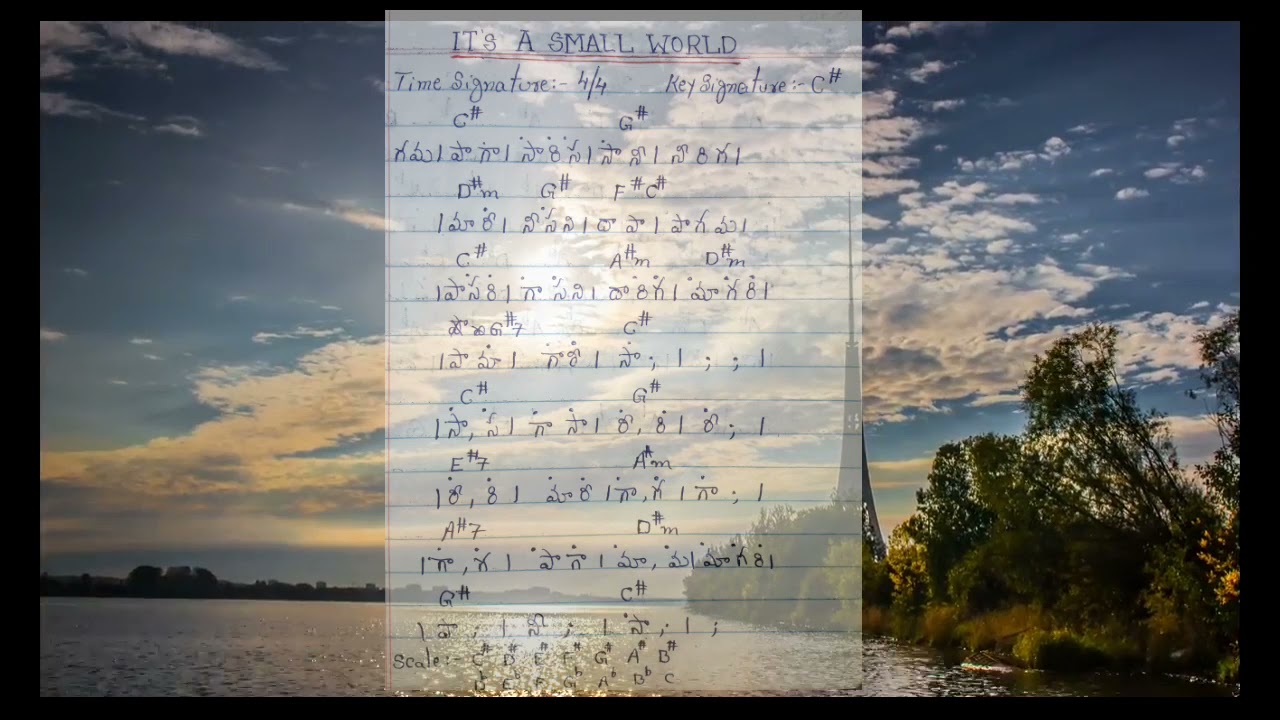 IT'S A SMALL WORLD
Time Signature:- 4/4 Key Signature:- C#
C# G#
గమ। పా గా। సా రి స। సా నీ। నీ రి గ।
D#m G# F# C#
। మా రీ। నీ స ని। దా పా। పా గ మ।
C# A#m D#m
। పా స రి। గా స ని। దా రి గ। మా గ రి।
G#7 C#
। పా మా। గా రీ। సా ; । ; ; ।
C# G#
। సా, స। గా సా। రీ, రి। రీ ; ।
E#7 A#m
। రీ, రి। మా రీ। గా, గ। గా ; ।
A#7 D#m
। గా, గ। పా గా। మా, మ। మా గ రి।
G# C#
। పా ; । నీ ; । సా ; । ;
Scale:- C# D# E# F# G# A# B#
Db Eb F Gb Ab Bb C